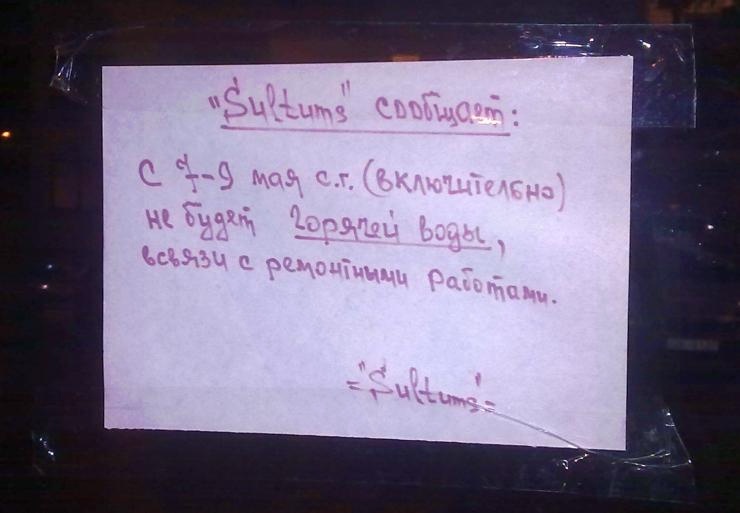 "Siltums" сообщает:
С 7-9 мая с.г. (включительно)
не будет горячей воды,
всвязи с ремонтными работами.
="Siltums"=